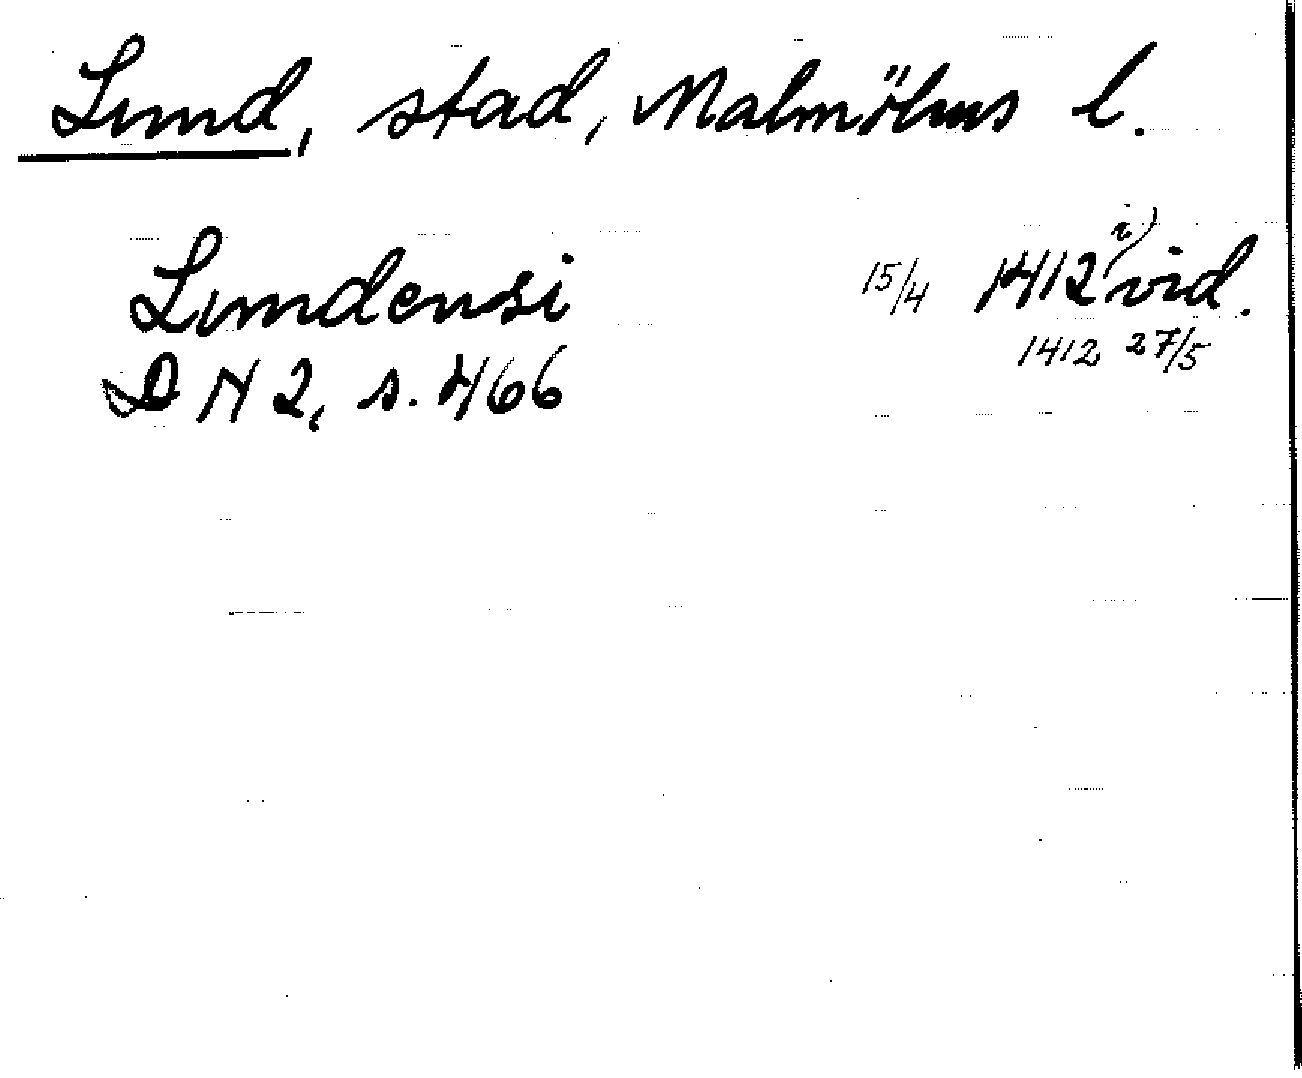 Lund, stad, Malmöhus l.
Lundensi 15/4 1412 i) vid.
1412 27/5
DN 2, s. 466